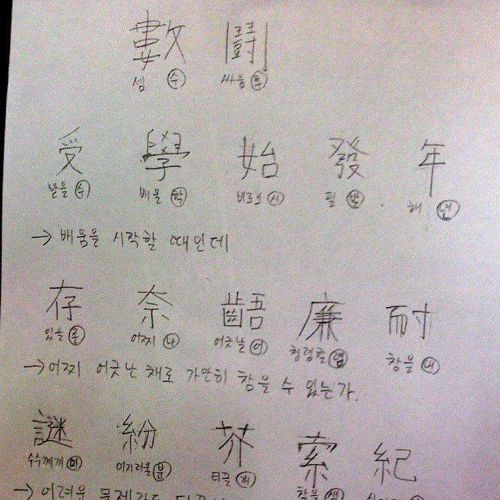 數 鬪
셈 수 싸움 투
受 學 始 發 年
받을 수 배울 학 비로소 시 필 발 해 년
→ 배움을 시작할 때인데
存 奈 齬 廉 耐
있을 존 어찌 나 어긋날 어 청렴할 염 참을 내
→ 어찌 어긋난 채로 가만히 참을 수 있는가.
謎 紛 芥 索 紀
수수께끼 미 어지러울 분 티끌 개 찾을 색
→ 어려운 문제라도